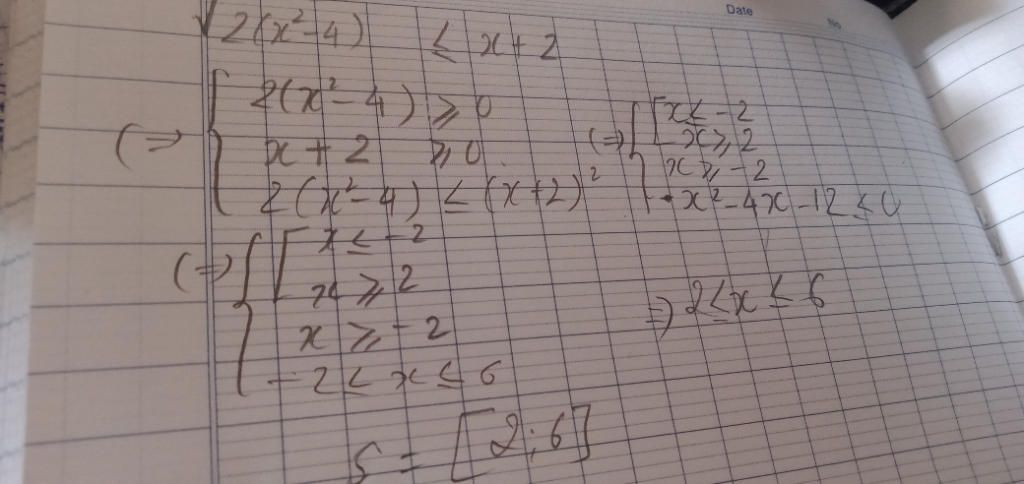 Date
No
√2(x²-4) ≤ x+2
(=> { 2(x²-4) ⩾ 0
x+2 ⩾ 0
2(x²-4) ≤ (x+2)²
(=> { [ x ≤ -2
x ⩾ 2
x ⩾ -2
x²-4x-12 ≤ 0
(=>) { [ x ≤ -2
x ⩾ 2
x ⩾ -2
-2 ≤ x ≤ 6
=) 2 ≤ x ≤ 6
S = [2;6]